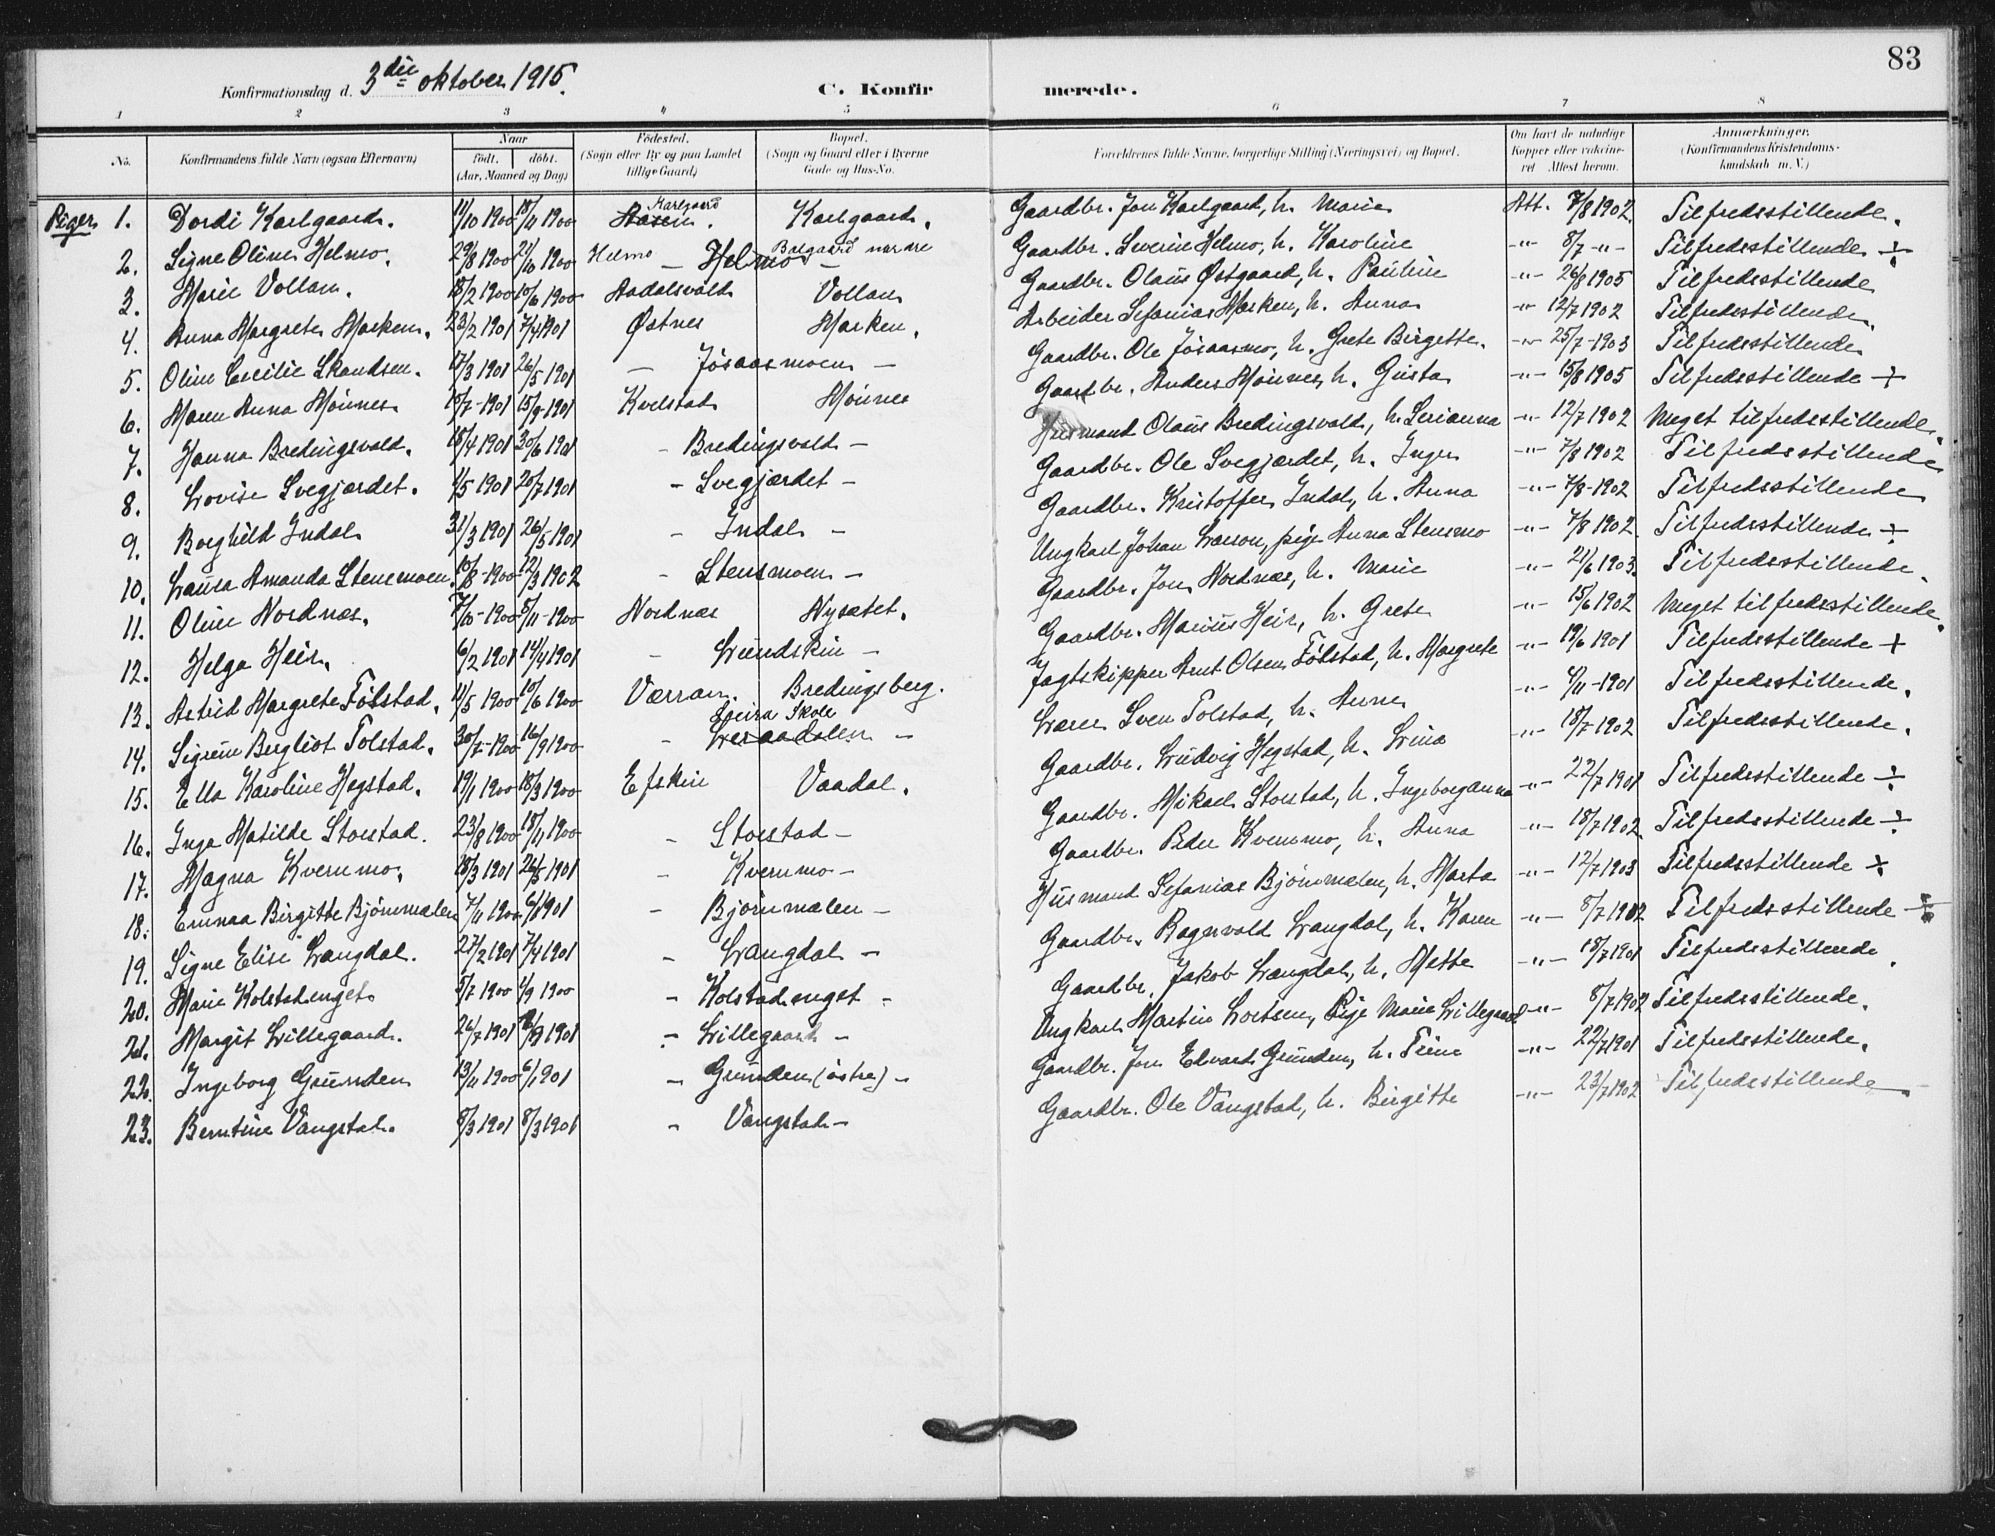 83
Konfirmationsdag d. 3die oktober 1915.
C. Konfirmerede.
1 2 3 4 5 6 7 8
No. Konfirmandens fulde Navn (ogsaa Efternavn)
Naar
født. døbt.
(Aar, Maaned og Dag)
Födested.
(Sogn eller By og paa Landet
tillige Gaard)
Bopæl.
(Sogn og Gaard eller i Byerne
Gade og Hus-No.
Forældrenes fulde Navne, borgerlige Stilling (Næringsvei) og Bopæl.
Om havt de naturlige
Kopper eller vakcine-
ret Attest herom.
Anmærkninger.
(Konfirmandens Kristendoms-
kundskab m. V.)
Piger 1. Dordi Karlgaard. 11/10 1900 18/11 1900 Karlgaard Aasen. Karlgaard. Gaardbr. Jon Karlgaard, h. Marie Att. 7/8 1902 Tilfredsstillende.
2. Signe Oline Helmo. 29/8 1900 21/10 1900 Helmo – Helmo – nerdre Gaardbr. Severin Helmo, h. Karoline -"- 8/7 -"- Tilfredsstillende ÷
3. Marie Vollan. 18/2 1900 10/6 1900 Aadalsvold Vollan Gaardbr. Olaus Østgaard, h. Pauline -"- 26/8 1905 Tilfredsstillende
4. Anna Margrete Marken. 23/2 1901 7/4 1901 Østnes Marken. Arbeider Sefanias Marken, h. Anna -"- 12/7 1902 Tilfredsstillende.
5. Oline Cecilie Skandsen. 17/3 1901 26/5 1901 – Jøsaasmoen – Gaardbr. Ole Jøsaasmo, h. Grete Birgette. -"- 25/7-1903 Tilfredsstillende
6. Maren Anna Møines 10/7-1901 15/9-1901 Kvelstad Møines Gaardbr. Anders Møines, h. Gusta -"- 15/8 1905 Tilfredsstillende ÷
7. Hanna Bredingsvold. 18/4 1901 30/6 1901 – Bredingsvold – Husmand Olaus Bredingsvold, h. Serianna -"- 12/7 1902 Meget tilfredsstillende.
8. Lovise Svegjærdet. 1/5 1901 20/7 1901 – Svegjærdet – Gaardbr. Ole Svegjærdet, h. Inger -"- 7/8 1902 Tilfredsstillende
9. Borghild Indal 31/3 1901 26/5-1901 – Indal – Gaardbr. Kristoffer Indal, h. Anna -"- 7/8-1902 Tilfredsstillende
10. Laura Amanda Stensmoen. 10/8-1900 12/3 1902 – Stensmoen – Ungkarl Johan Larson, pige Anna Stensmo -"- 7/8 1902. Tilfredsstillende ÷
11. Oline Nordnæs. 7/10-1900 5/11-1900 Nordnæs Nysætet. Gaardbr. Jon Nordnæs, h. Marie -"- 21/6 1903. Tilfredsstillende.
12. Helga Heir. 6/2 1901 14/4 1901 – Lundskin – Gaardbr. Marius Heir, h. Grete -"- 15/6 1902 Meget tilfredsstillende.
13. Astrid Margrete Følstad. 11/5 1900 10/6 1900 Værran. Bredingsberg. Jagtskipper Arnt Olsen Følstad, h. Margrete -"- 19/6 1901 Tilfredsstillende ÷
14. Sigrun Bergliot Tolstad. 30/7-1900 16/9 1900 – Leira Skole – Lærer Sven Tolstad, h. Anne -"- 6/11-1901 Tilfredsstillende.
15. Ella Karoline Hegstad. 19/1 1900 18/3 1900 Efskin Vaadal. Gaardbr. Ludvig Hegstad, h. Lina -"- 18/7 1902 Tilfredsstillende.
16. Inga Matilde Storstad. 23/8 1900 18/11 1900 – Storstad – Gaardbr. Mikael Storstad, h. Ingeborganna -"- 22/7 1901 Tilfredsstillende ÷
17. Magna Kvernmo. 18/3 1901 26/5 1901 – Kvernmo – Gaardbr. Peder Kvernmo, h. Anna -"- 18/7 1902 Tilfredsstillende ÷
18. Emnaa Birgitte Bjørnmælen 7/11 1900 6/1 1901 – Bjørnmælen – Husmand Sefanias Bjørnmælen, h. Marta -"- 12/7 1903 Tilfredsstillende ÷
19. Signe Elise Langdal. 27/2 1901 7/4 1901 – Langdal – Gaardbr. Ragnvold Langdal, h. Karen -"- 8/7 1902 Tilfredsstillende ÷
20. Marie Kolstadenget 5/7 1900 1/9 1900 – Kolstadenget – Gaardbr. Jakob Langdal, h. Mette -"- 18/7 1901 Tilfredsstillende.
21. Margit Lillegaard. 26/7 1901 1901 – Lillegaard – Ungkarl Martin Lortsen, Pige Marie Lillegaard -"- 8/7 1902 Tilfredsstillende.
22. Ingeborg Grunden 13/11 1900 6/1 1901 – Grunden (østre) – Gaardbr. Jon Edvard Grunden, h. Trine -"- 22/7 1901 Tilfredsstillende.
23. Berntine Vangstad. 8/3 1901 8/3 1901 – Vangstad – Gaardbr. Ole Vangstad, h. Birgitte -"- 23/7 1902 Tilfredsstillende.